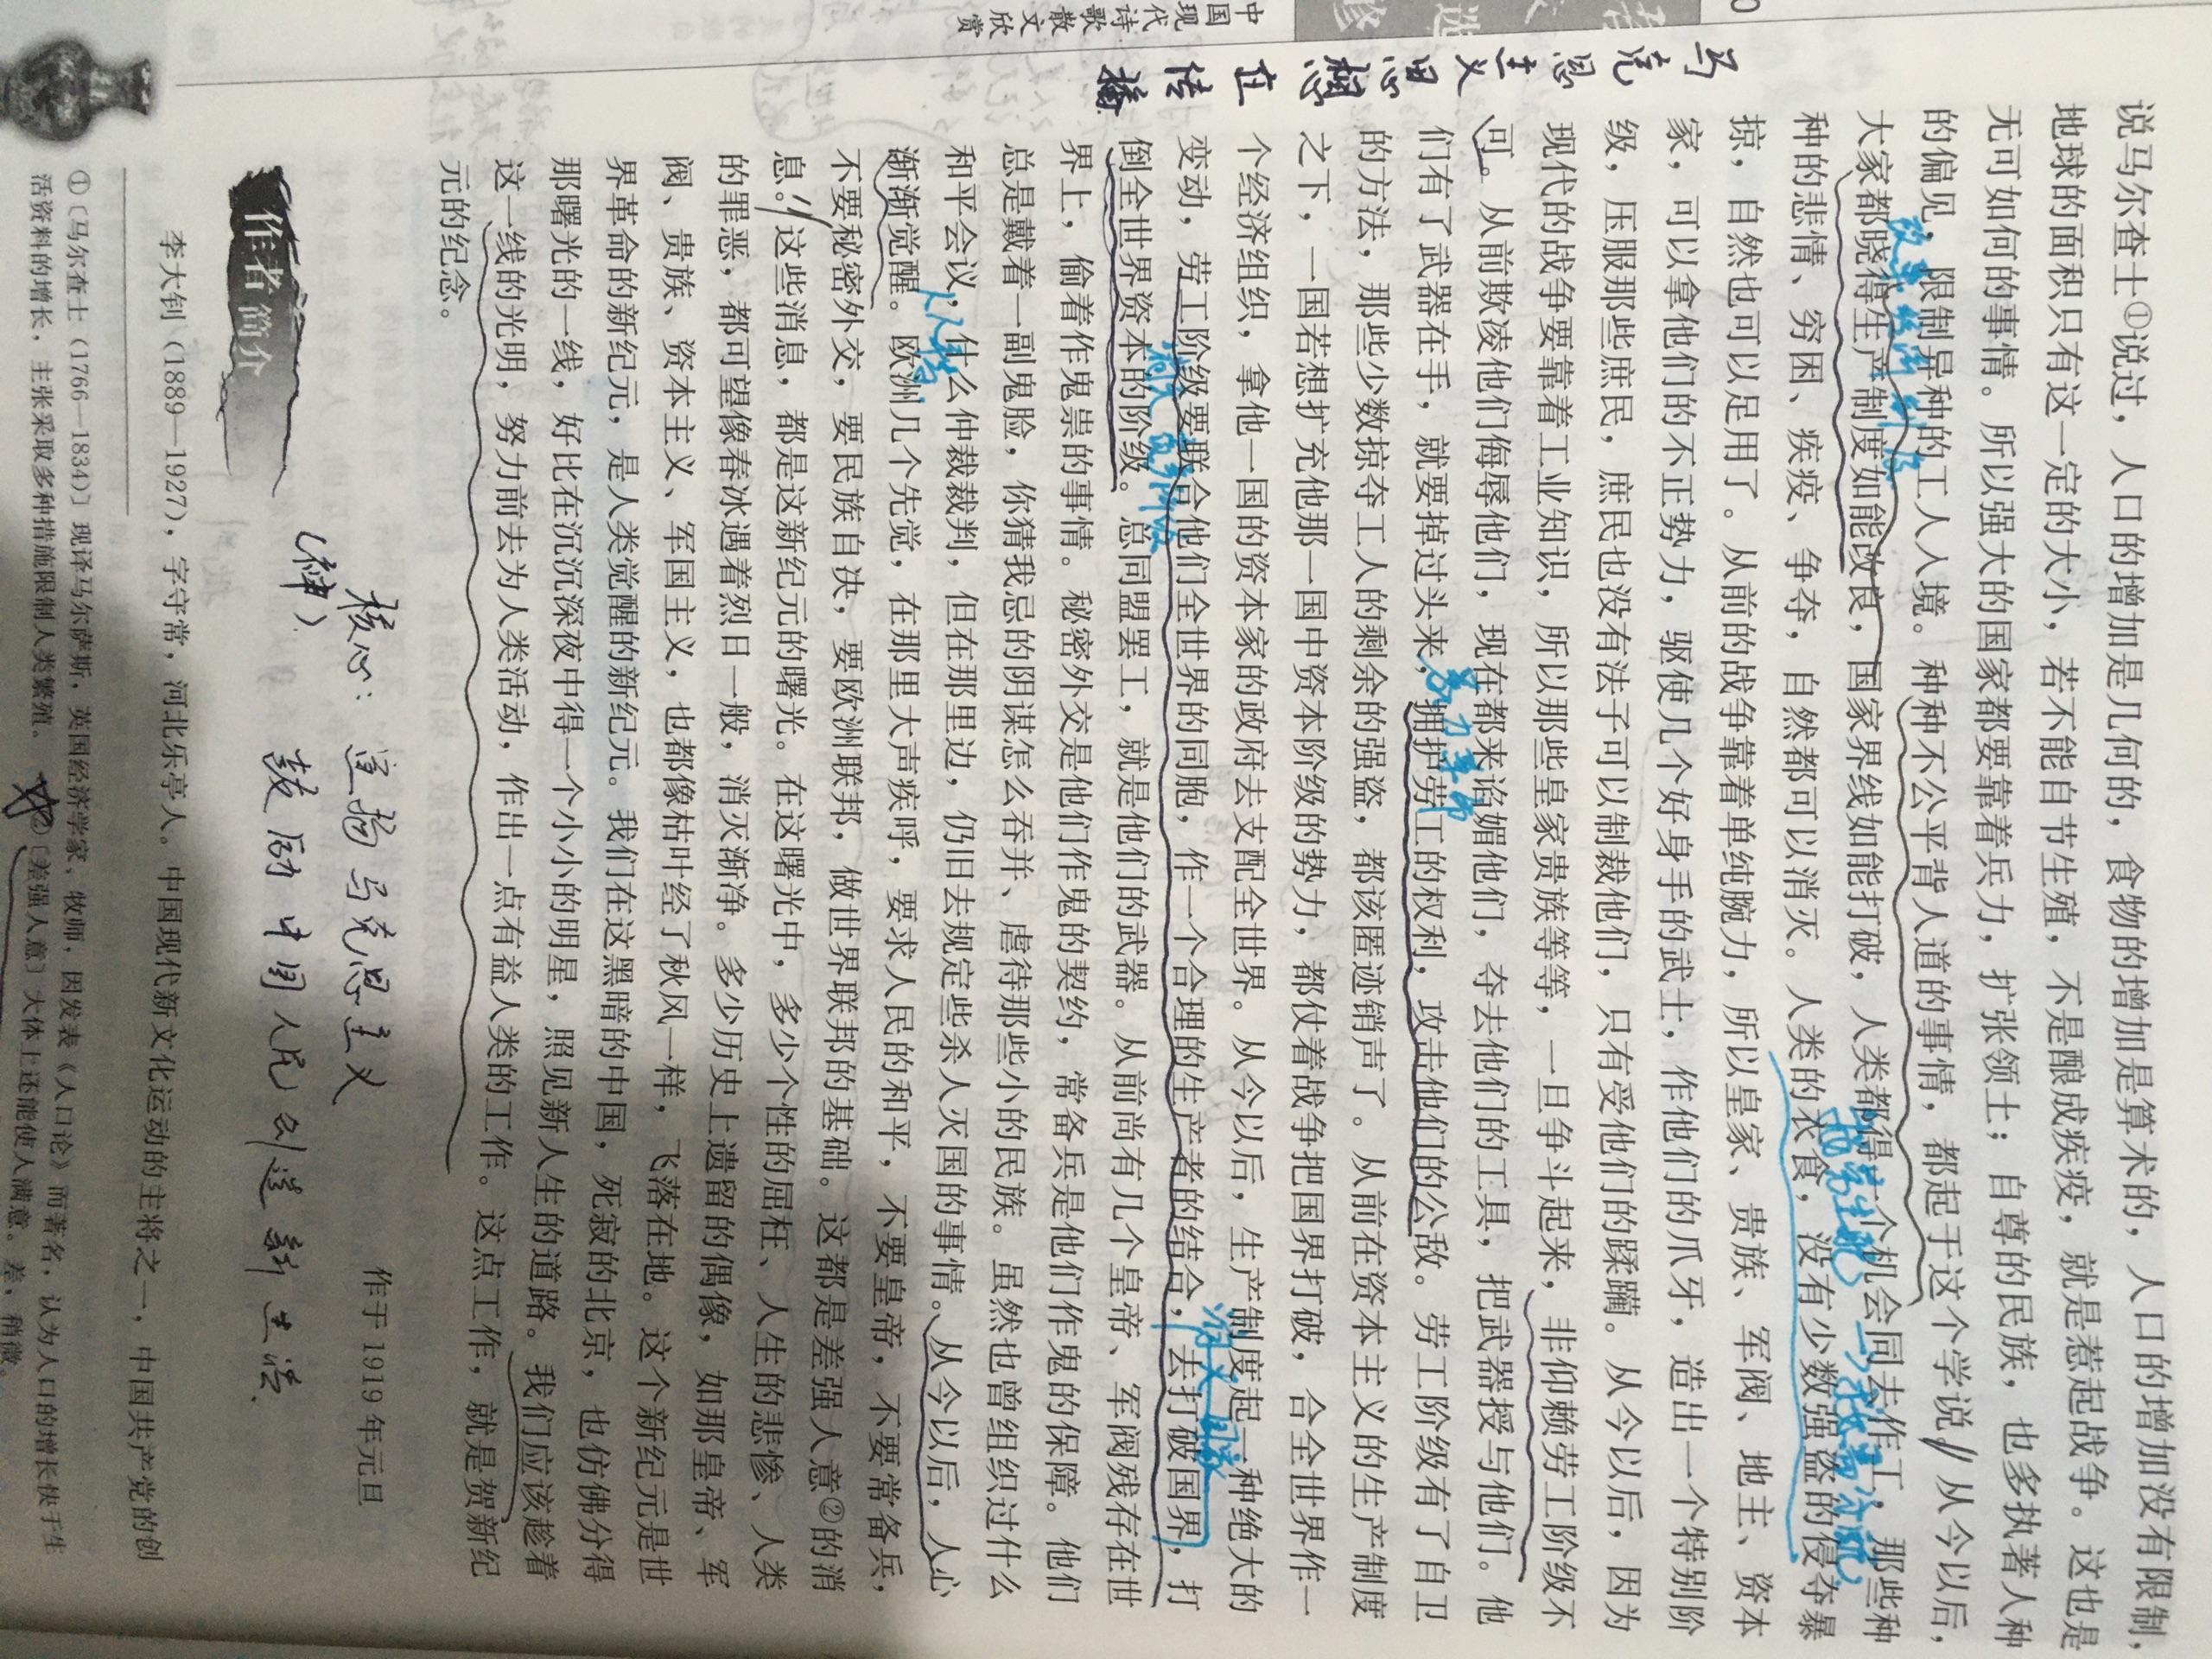 中国现代诗歌散文欣赏
马克思主义思想在传播
说马尔查士①说过，人口的增加是几何的，食物的增加是算术的，人口的增加没有限制，
地球的面积只有这一定的大小，若不能自节生殖，不是酿成疾疫，就是惹起战争。这也是
无可如何的事情。所以强大的国家都要靠着兵力，扩张领土；自尊的民族，也多执著人种
的偏见，限制异种的工人入境。种种不公平背人道的事情，都起于这个学说。从今以后，
大家都晓得生产制度如能改良，国家界线如能打破，人类都得一个机会同去作工，那些种
种的悲情、穷困、疾疫、争夺，自然都可以消灭。人类的衣食，没有少数强盗的侵夺暴
掠，自然也可以足用了。从前的战争靠着单纯腕力，所以皇家、贵族、军阀、地主、资本
家，可以拿他们的不正势力，驱使几个好身手的武士，作他们的爪牙，造出一个特别阶
级，压服那些庶民，庶民也没有法子可以制裁他们，只有受他们的蹂躏。从今以后，因为
现代的战争要靠着工业知识，所以那些皇家贵族等等，一旦争斗起来，非仰赖劳工阶级不
可。从前欺凌他们侮辱他们，现在都来谄媚他们，夺去他们的工具，把武器授与他们。他
们有了武器在手，就要掉过头来，拥护劳工的权利，攻击他们的公敌。劳工阶级有了自卫
的方法，那些少数掠夺工人的剩余的强盗，都该匿迹销声了。从前在资本主义的生产制度
之下，一国若想扩充他那一国中资本阶级的势力，都仗着战争把国界打破，合全世界作一
个经济组织，拿他一国的资本家的政府去支配全世界。从今以后，生产制度起一种绝大的
变动，劳工阶级要联合他们全世界的同胞，作一个合理的生产者的结合，去打破国界，打
倒全世界资本的阶级。总同盟罢工，就是他们的武器。从前尚有几个皇帝、军阀残存在世
界上，偷着作鬼祟的事情。秘密外交是他们作鬼的契约，常备兵是他们作鬼的保障。他们
总是戴着一副鬼脸，你猜我忌的阴谋怎么吞并、虐待那些小的民族。虽然也曾组织过什么
和平会议，什么仲裁裁判，但在那里边，仍旧去规定些杀人灭国的事情。从今以后，人心
渐渐觉醒。欧洲几个先觉，在那里大声疾呼，要求人民的和平，不要皇帝，不要常备兵，
不要秘密外交，要民族自决，要欧洲联邦，做世界联邦的基础。这都是差强人意②的消
息。这些消息，都是这新纪元的曙光。在这曙光中，多少个性的屈枉、人生的悲惨、人类
的罪恶，都可望像春冰遇着烈日一般，消灭渐净。多少历史上遗留的偶像，如那皇帝、军
阀、贵族、资本主义、军国主义，也都像枯叶经了秋风一样，飞落在地。这个新纪元是世
界革命的新纪元，是人类觉醒的新纪元。我们在这黑暗的中国，死寂的北京，也仿佛分得
那曙光的一线，好比在沉沉深夜中得一个小小的明星，照见新人生的道路。我们应该趁着
这一线的光明，努力前去为人类活动，作出一点有益人类的工作。这点工作，就是贺新纪
元的纪念。
作于1919年元旦
核心：宣扬马克思主义
鼓励中国人民创造新生活.
作者简介
李大钊（1889—1927），字守常，河北乐亭人。中国现代新文化运动的主将之一，中国共产党的创
①〔马尔查士（1766—1834）〕现译马尔萨斯，英国经济学家、牧师，因发表《人口论》而著名，认为人口的增长快于生
活资料的增长，主张采取多种措施限制人类繁殖。 ②〔差强人意〕大体上还能使人满意。差，稍微。